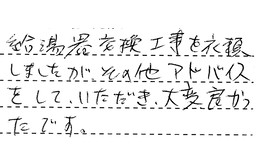 給湯器交換工事を依頼
しましたが、その他アドバイス
をして、いただき、大変良かっ
たです。